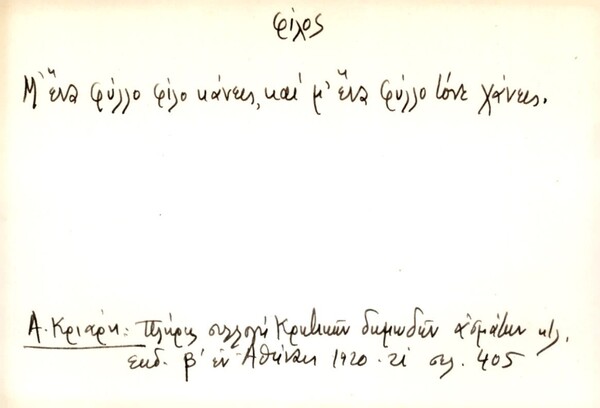 φίλος
Μ' ἕνα φύλλο φίλο κάνεις, καί μ' ἕνα φύλλο τόνε χάνεις.
Α. Κριάρη: Πλήρης συλλογή Κρητικῶν δημωδῶν ἀσμάτων κτλ.
ἐκδ. β' ἐν Ἀθήναις 1920. σελ. 405